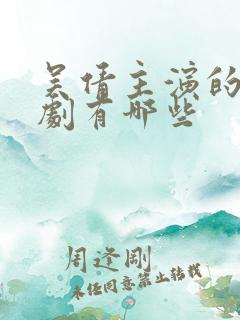 吴倩主演的
劇有哪些
周逢剛
未经同意禁止转载